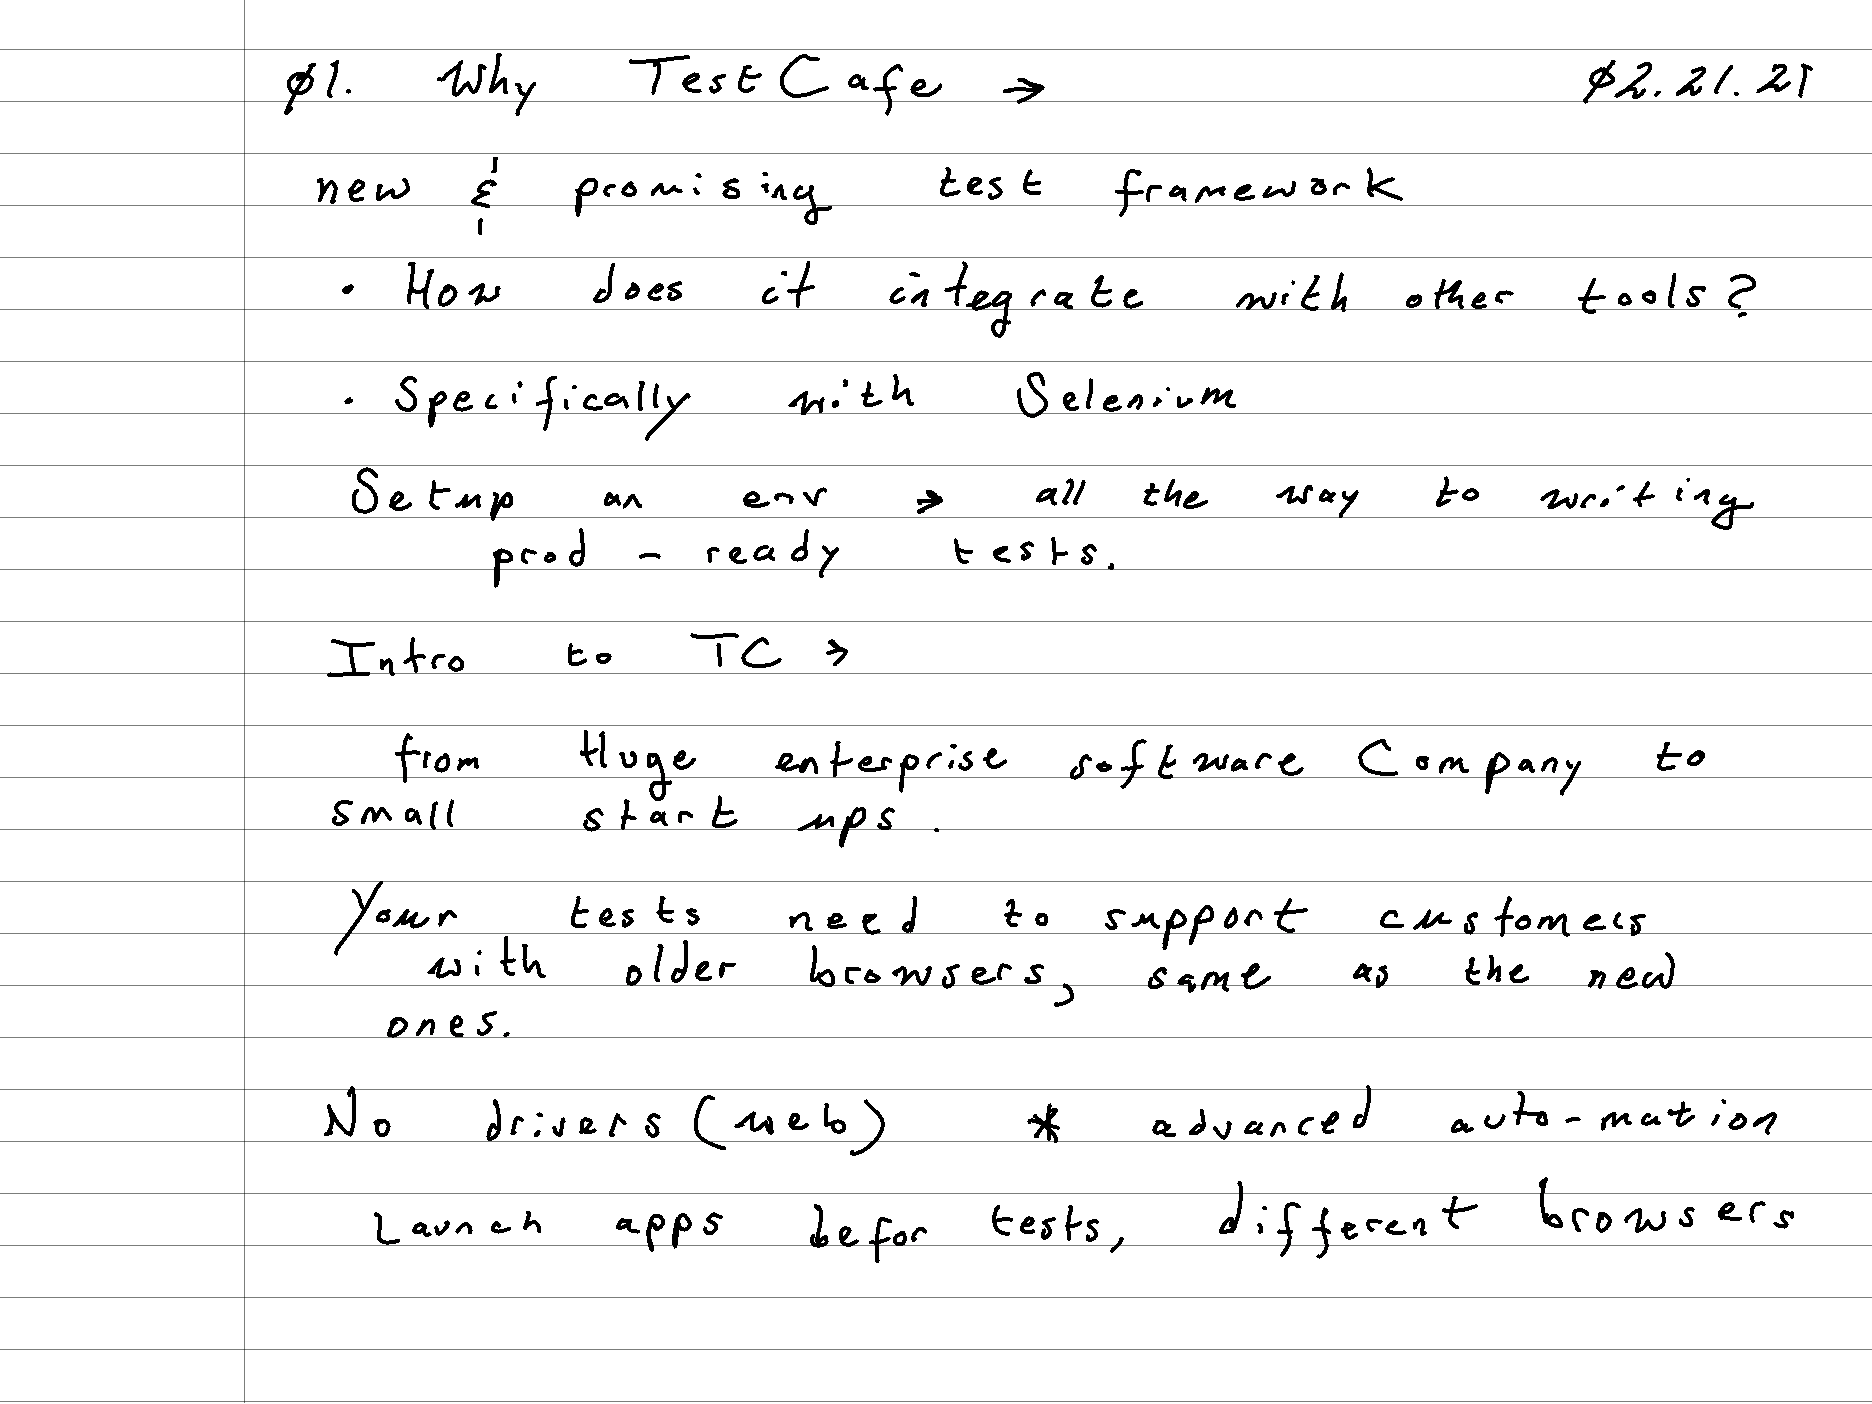 01. Why TestCafe → 02.21.21
new & promising test framework
• How does it integrate with other tools?
• Specifically with Selenium
Setup an env → all the way to writing
prod - ready tests.
Intro to TC →
from Huge enterprise software Company to
small start ups.
Your tests need to support customers
with older browsers, same as the new
ones.
No drivers (web) * advanced auto-mation
Launch apps befor tests, different browsers